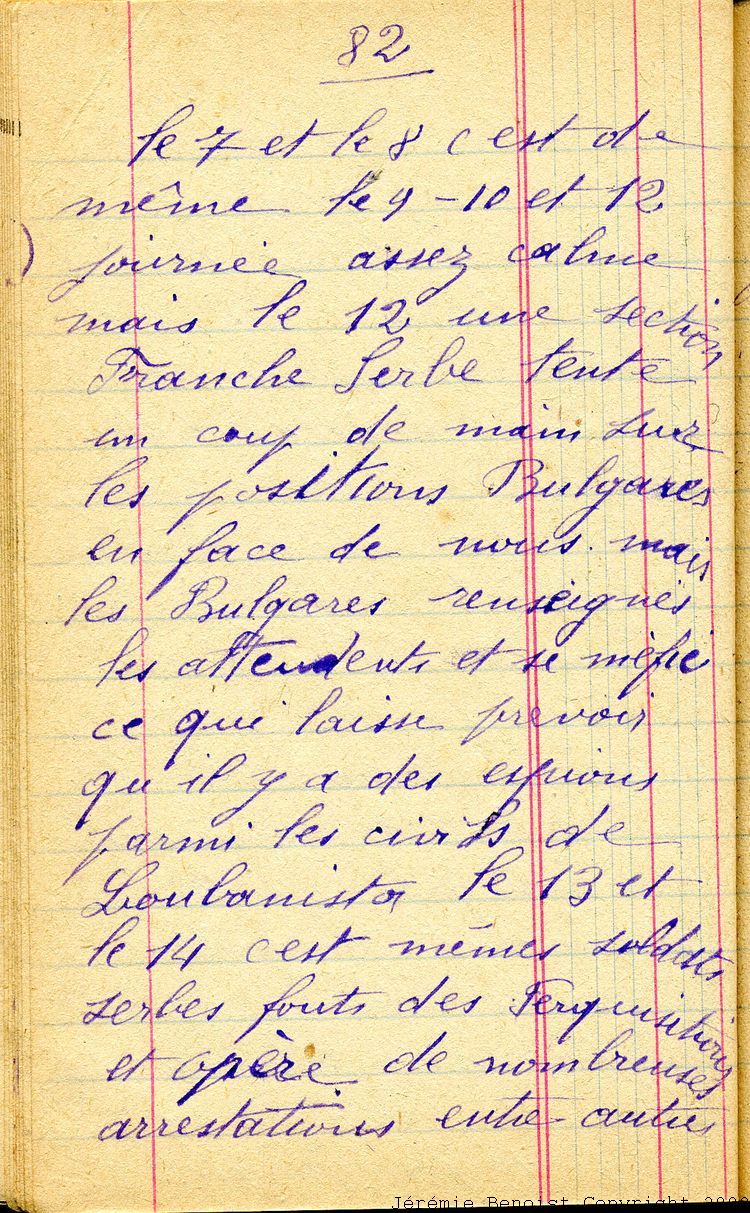 82
le 7 et le 8 c est de
même le 9 - 10 et 12
journée assez calme
mais le 12 une section
Franche Serbe tente
un coup de main sur
les positions Bulgares
en face de nous. mais
les Bulgares renseignés
les attendents et se méfie
ce qui laisse prevoir
qu il y a des espions
parmi les civils de
Loubanista le 13 et
le 14 cest mêmes soldats
serbes fonts des Perquisitions
et opère de nombreuses
arrestations entre autres
Jérémie Benoist Copyright